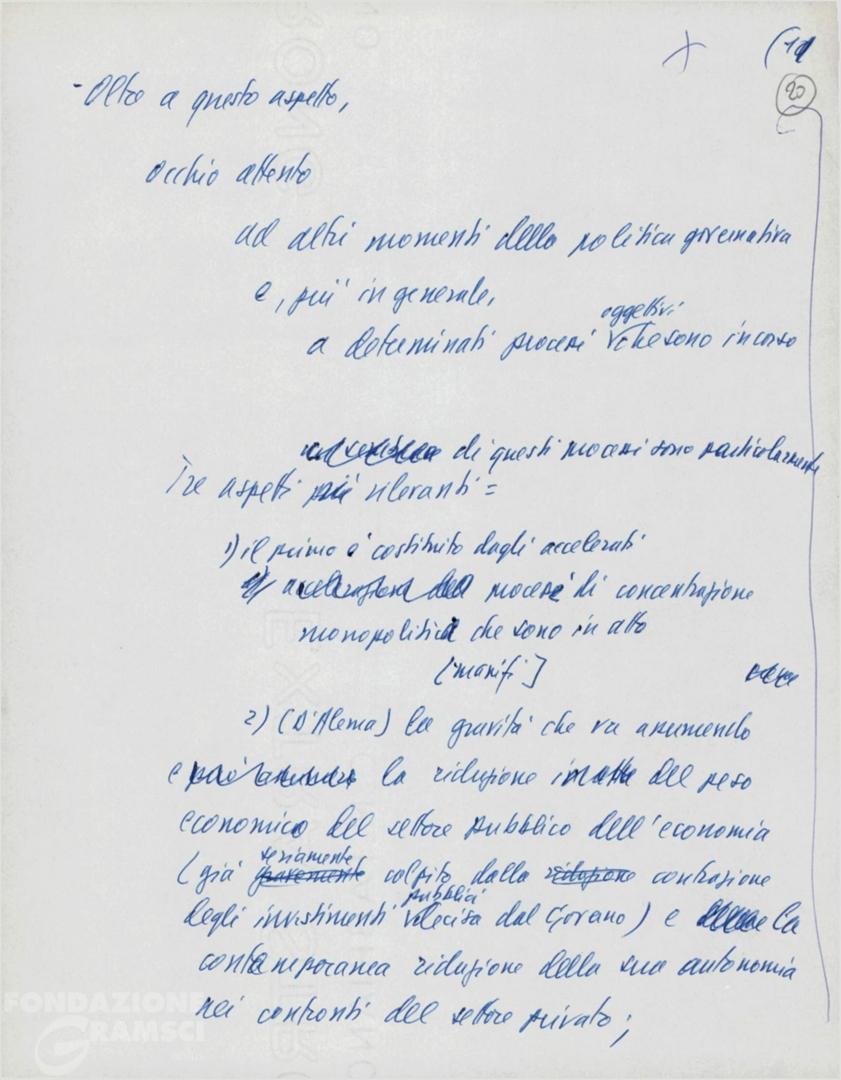 (11
20
- Oltre a questo aspetto,
occhio attento
ad altri momenti della politica governativa
e, più in generale,
oggettivi
a determinati processi che sono in corso
di questi processi sono particolarmente
Tre aspetti più rilevanti =
1) il primo è costituito dagli accelerati
2) accelerazione del processi di concentrazione
monopolistica che sono in atto
2) (D'Alema) la gravità che va assumendo
e la riduzione del peso
economico del settore pubblico dell'economia
seriamente
(già gravemente colpito dalla riduzione contrazione
pubblici
degli investimenti decisa dal Governo) e la
contemporanea riduzione della sua autonomia
nei confronti del settore privato;
FONDAZIONE
GRAMSCI